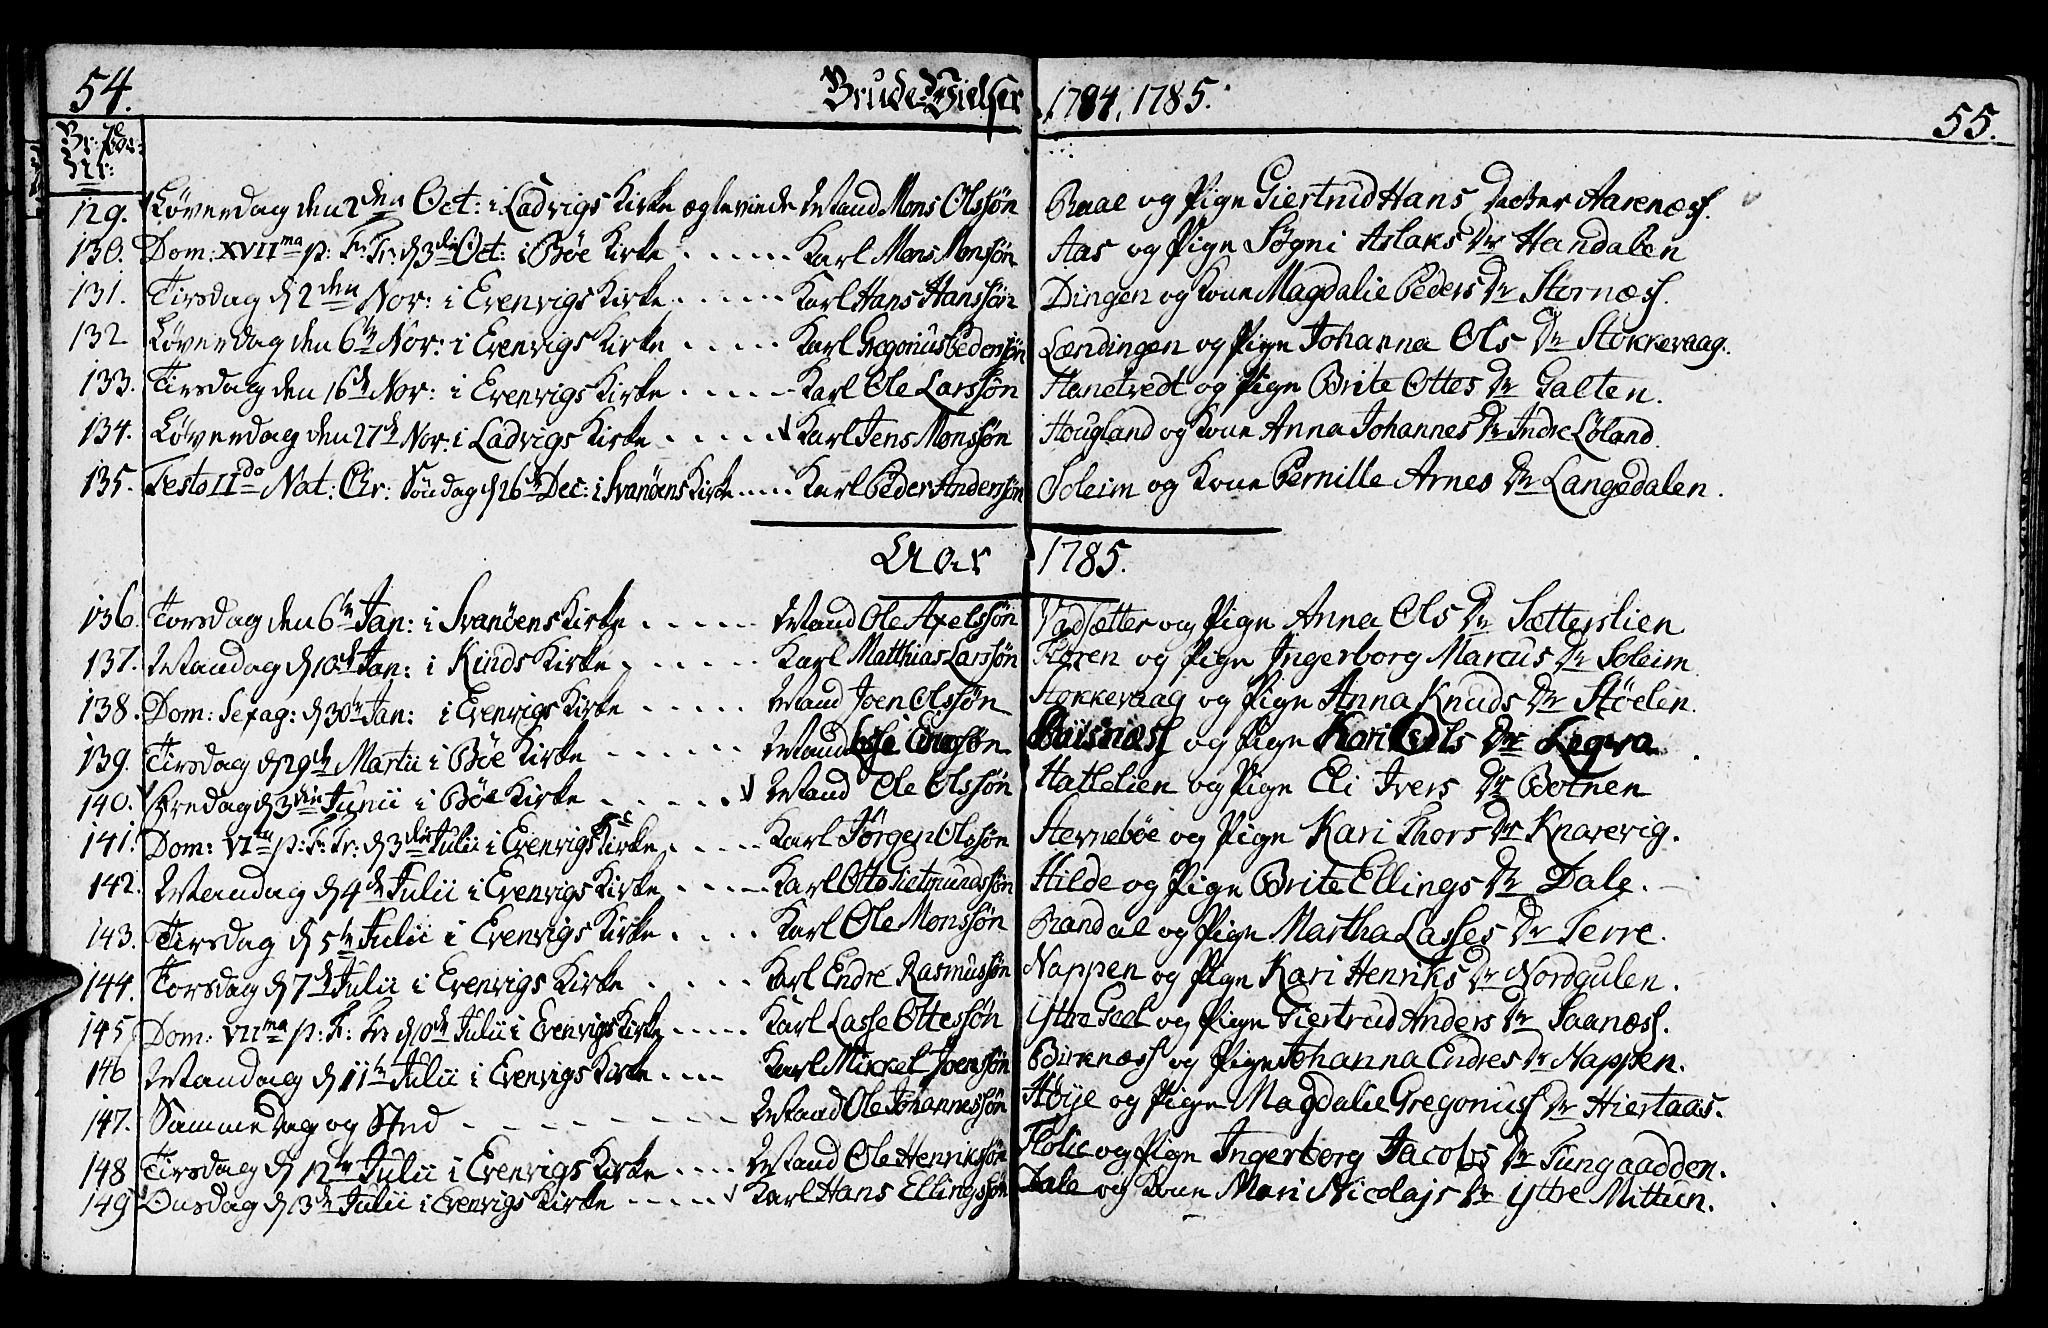 54. Brude-Vielser 1784, 1785. 55.
Br: Vier
Nr:
129. Løverdag den 2den Oct: i Ladvigs Kirke ægteviede Mand Mons Olssøn Raae og Pige Giertrud Hans Docter Aarenæss.
130. Dom: XVIIma p: F: Tr: d 3die Oct: i Böe Kirke Karl Mons Monssøn Aas og Pige Sögni Aslaks Dr Handalen
131. Tirsdag d 2den Nov: i Evenvigs Kirke Karl Hans Hanssøn Dingen og Kone Magdalie Peders Dr Stornæss.
132 Løverdag den 6te Nov: i Evenvigs Kirke Karl Gregorius Pederssön Lændingen og Pige Johanna Ols Dr Stokkevaag.
133. Tirsdag den 16de Nov: i Evenvigs Kirke Karl Ole Larssøn Hanetvedt og Pige Brite Ottes Dr Galten.
134. Løverdag den 27de Nov: i Ladvigs Kirke Karl Jens Monssøn Hougland og Kone Anna Johannes Dr Indre Løland.
135. Festo IIdo Nat: Chr: Søndag d 26de Dec: i Svanöens Kirke Karl Peder Anderssön Soleim og Kone Pernille Arnes Dr Langedalen.
Aar 1785.
136. Torsdag den 6te Jan: i Svanöens Kirke Mand Ole Axelssön Vadsætter og Pige Anna Ols Dr Sætterslien
137. Mandag d 10de Jan: i Kinds Kirke Karl Matthias Larssøn Floren og Pige Ingerborg Marcus Dr Soleim
138. Dom: Sexag: d 30te Jan: i Evenvigs Kirke Mand Joen Olssøn Stokkevaag og Pige Anna Knuds Dr Stöelen.
139. Tirsdag d 29de Martii i Böe Kirke Mand og Pige Kari Ols Dr Legva
140. Fredag d 3die Junii i Böe Kirke Mand Ole Olssøn Hatlelien og Pige Eli Ivers Dr Botnen
141. Dom: VIta p: F: Tr: d 3die Julii i Evenvigs Kirke Karl Jørgen Olssøn Stevnebøe og Pige Kari Thors Dr Knarevig.
142. Mandag d 4de Julii i Evenvigs Kirke Karl Otto Sietmundssøn Hilde og Pige Brite Ellings Dr Dale.
143. Tirsdag d 5te Julii i Evenvigs Kirke Karl Ole Monssøn Randal og Pige Martha Lasses Dr Terre.
144. Torsdag d 7de Julii i Evenvigs Kirke Karl Endre Rasmussøn Nappen og Pige Kari Henriks Dr Nordgulen.
145 Dom: VIIma p: F: Tr: d 10de Julii i Evenvigs Kirke Karl Lasse Ottessøn Yttre og Pige Giertrud Anders Dr Saanæss.
146 Mandag d 11te Julii i Evenvigs Kirke Karl Mikkel Joenssøn Birkenæss og Pige Johanna Endres Dr Nappen.
147. Samme Dag og Sted Mand Ole Johannessøn Høye og Pige Magdalie Gregoriuss Dr Hiertaas.
148 Tirsdag d 12te Julii i Evenvigs Kirke Mand Ole Henrikssøn Flolie og Pige Ingerborg Jacobs Dr Tungaadden.
149 Onsdag d 13de Julii i Evenvigs Kirke Karl Hans Ellingssøn Dale og Kone Mari Nicolajs Dr Yttre Mittun.